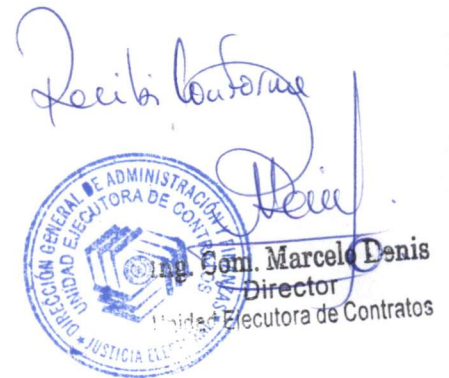 Recibí Conforme
DIRECCIÓN GENERAL DE ADMINISTRACIÓN Y FINANZAS
UNIDAD EJECUTORA DE CONTRATOS
JUSTICIA ELECTORAL
Ing. Com. Marcelo Denis
Director
Unidad Ejecutora de Contratos